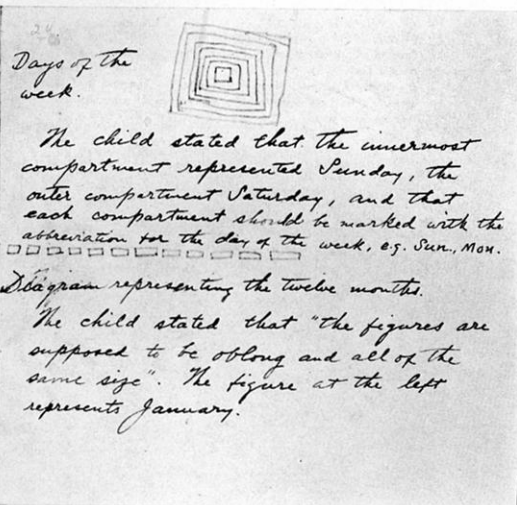 Days of the
week.
The child stated that the innermost
compartment represented Sunday, the
outer compartment Saturday, and that
each compartment should be marked with the
abbreviation for the day of the week, e.g. Sun., Mon.
Diagram representing the twelve months.
The child stated that "the figures are
supposed to be oblong and all of the
same size". The figure at the left
represents January.